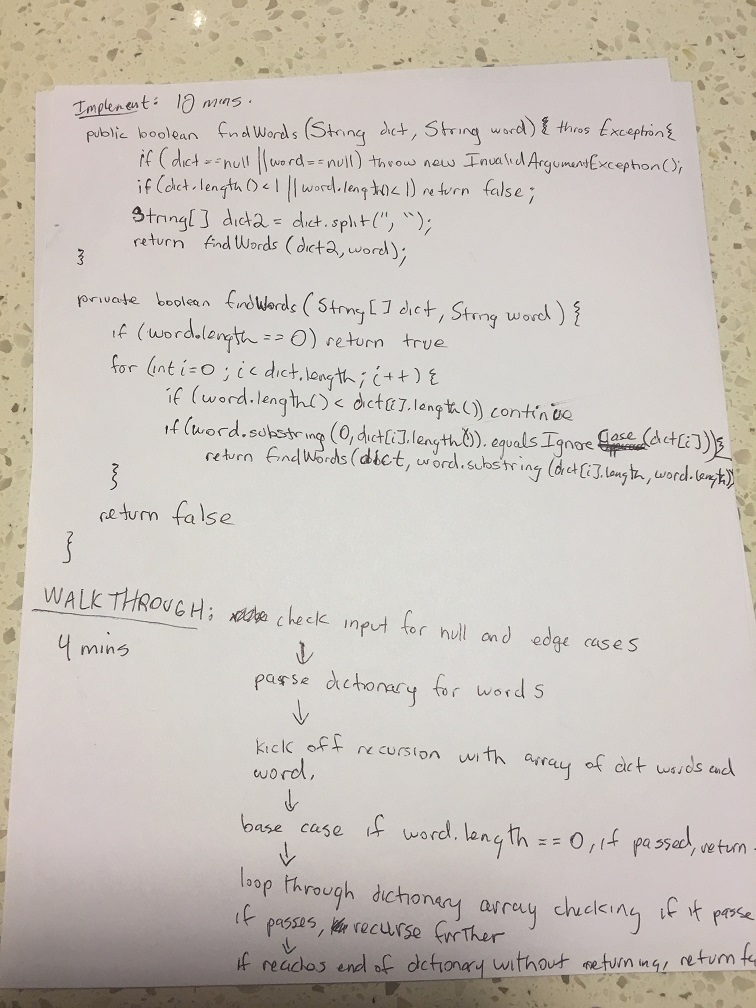 Implement: 10 mins.
public boolean findWords (String dict, String word) { throws Exception {
if (dict == null || word == null) throw new InvalidArgumentException();
if (dict.length() < 1 || word.length() < 1) return false;
String[] dict2 = dict.split(", ");
return findWords (dict2, word);
}
private boolean findWords (String [] dict, String word) {
if (word.length == 0) return true
for (int i=0; i< dict.length; i++) {
if (word.length() < dict[i].length()) continue
if (word.substring (0, dict[i].length()). equals Ignore Case (dict[i])) {
return findWords (dict, word.substring (dict[i].length, word.length))
}
return false
}
WALK THROUGH: check input for null and edge cases
4 mins
↓
parse dictionary for words
↓
kick off recursion with array of dict words and
word,
↓
base case if word.length == 0, if passed, return
↓
loop through dictionary array checking if it passe
if passes, recurse further
↓
if reaches end of dictionary without returning, return fa